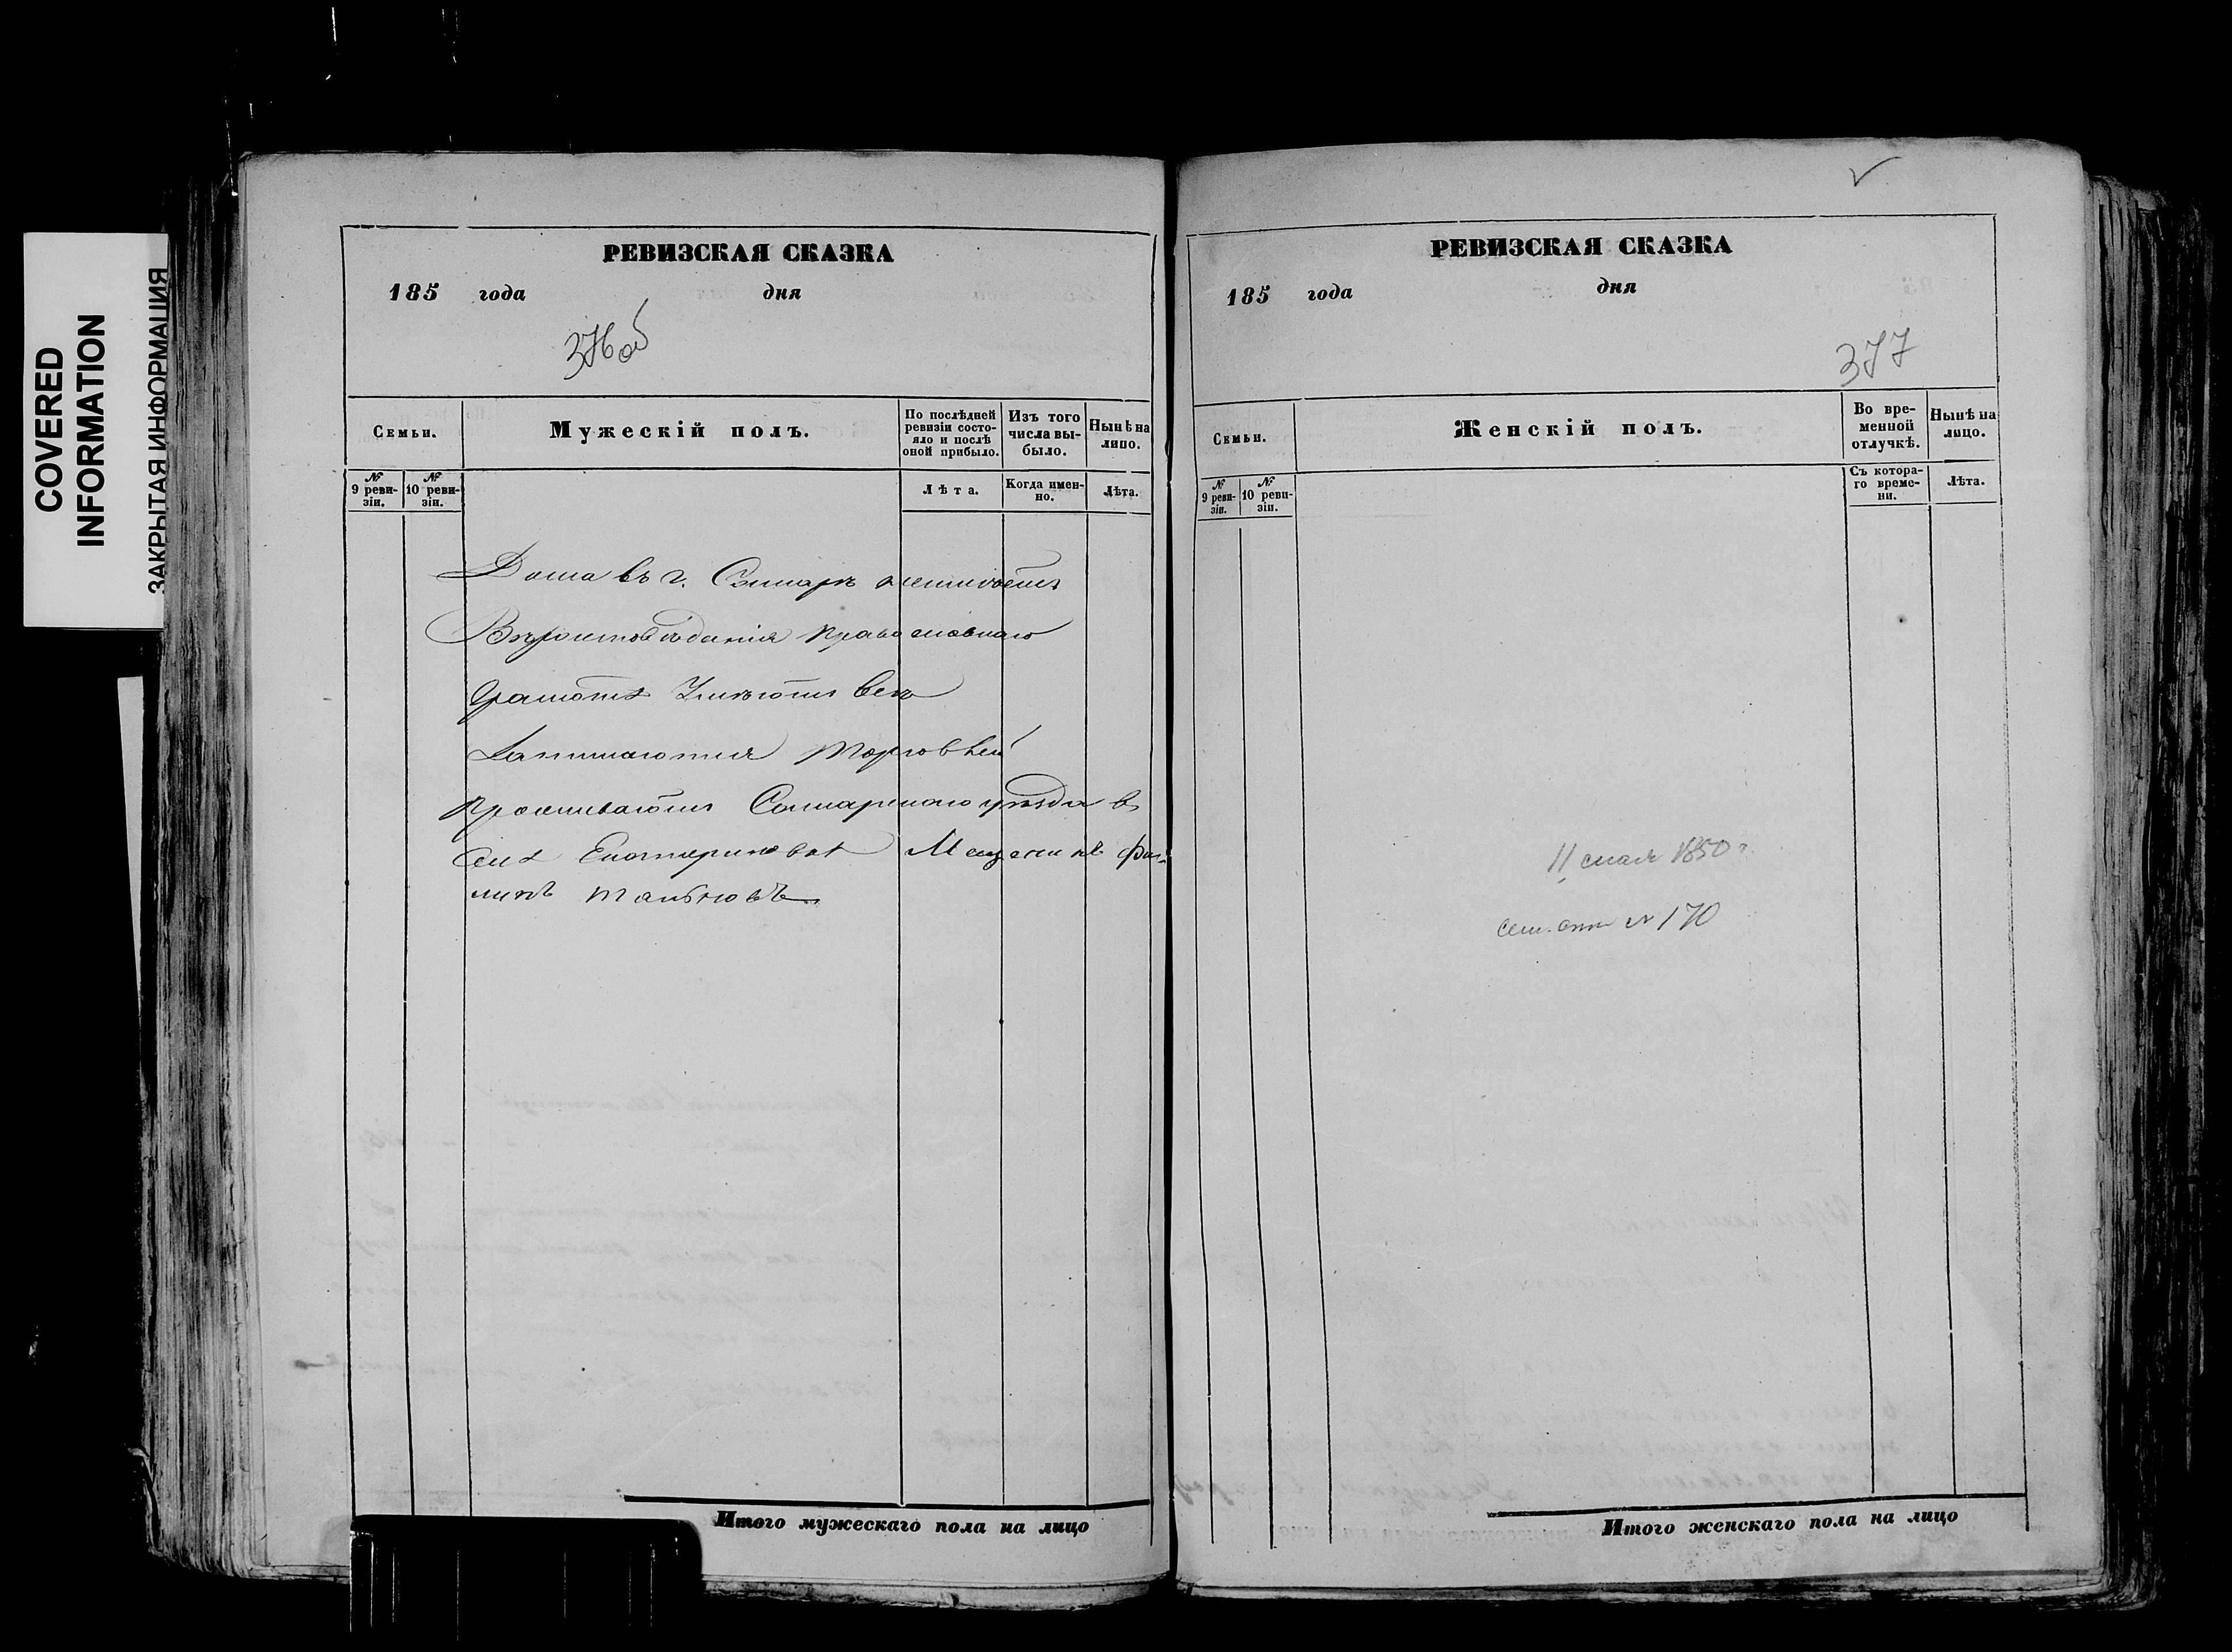 COVERED
INFORMATION
ЗАКРЫТАЯ ИНФОРМАЦИЯ
РЕВИЗСКАЯ СКАЗКА
185 года дня
376 об
Семьи.
Мужескій полъ.
По послѣдней ревизіи состояло и послѣ оной прибыло.
Изъ того числа выбыло.
Нынѣ на лицо.
№ 9 ревизіи.
№ 10 ревизіи.
Лѣта.
Когда именно.
Лѣта.
Дома въ г. Самарѣ
Вѣроисповѣданія православнаго
Грамотѣ
Занимаются торговлей
Проживаютъ Самарского уѣзда въ
селѣ Екатериновкѣ Мещанинъ
Итого мужескаго пола на лицо
РЕВИЗСКАЯ СКАЗКА
185 года дня
377
Семьи.
Женскій полъ.
Во временной отлучкѣ.
Нынѣ на лицо.
№ 9 ревизіи.
№ 10 ревизіи.
Съ котораго времени.
Лѣта.
11 мая 1850 г.
№ 170
Итого женскаго пола на лицо